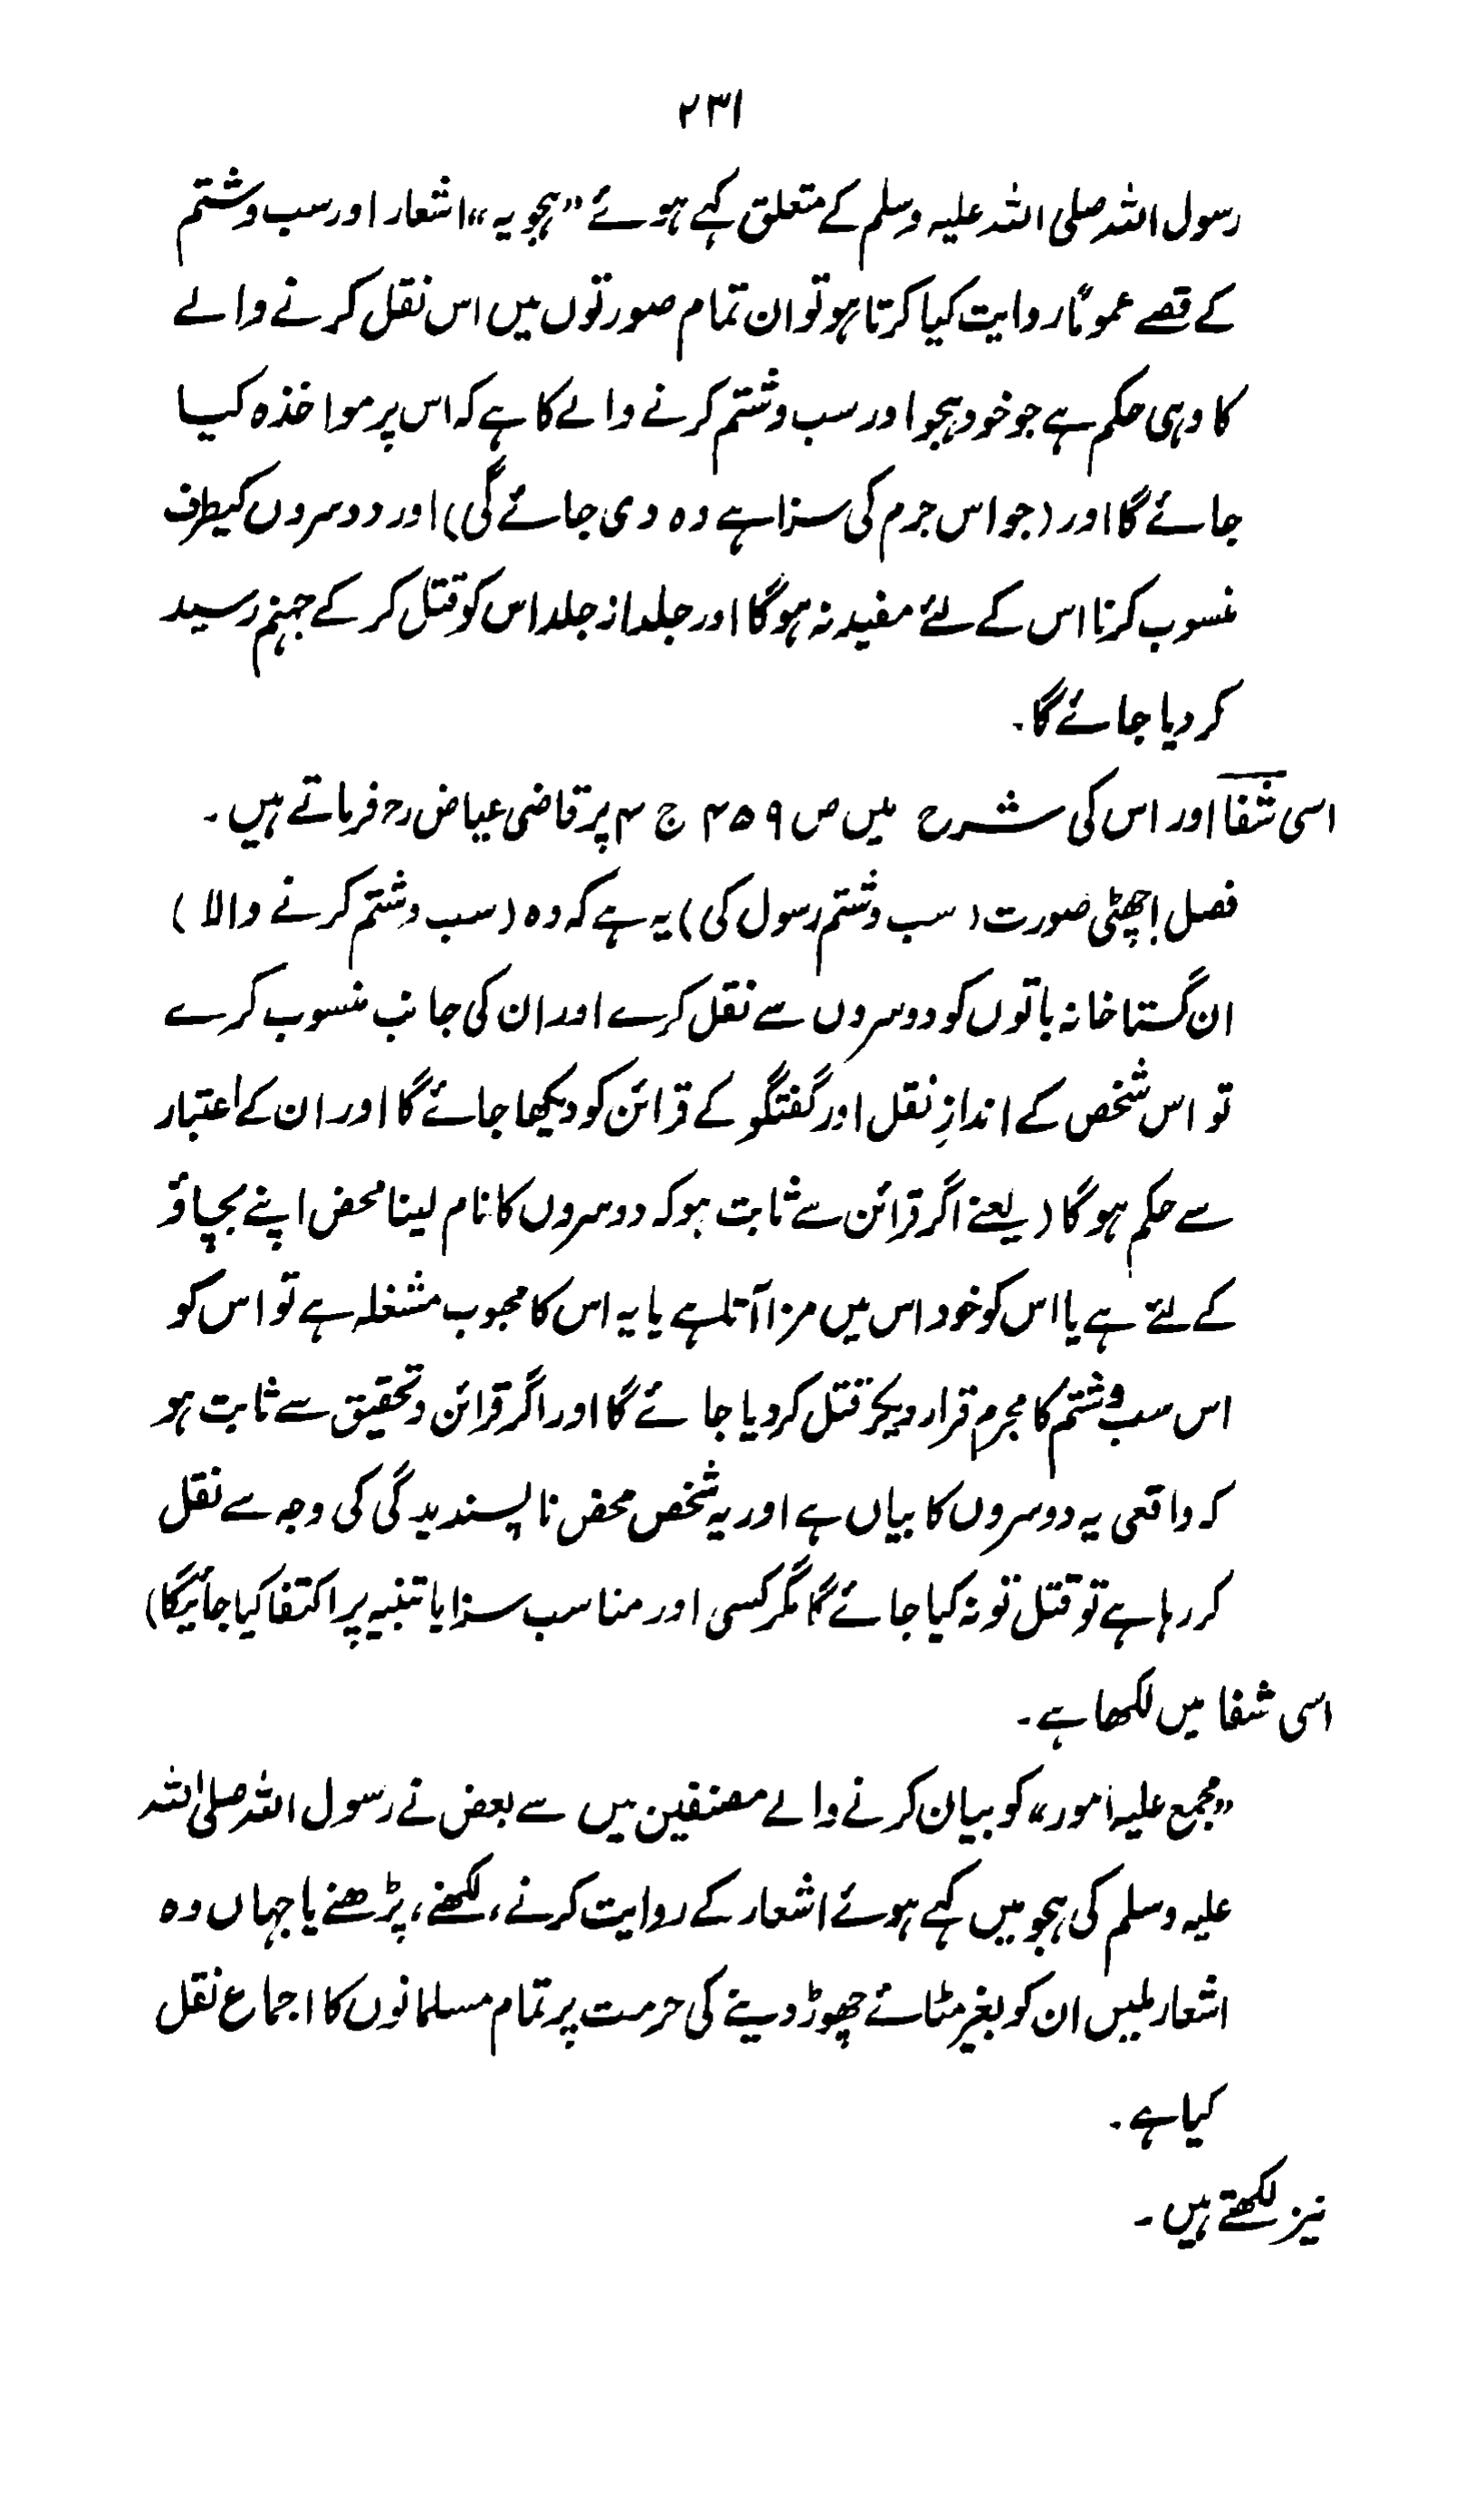 ۲۳۱
رسول اللہ صلی اللہ علیہ وسلم کے متعلق کہے ہوئے ”ہجویہ“ اشعار اور سب وشتم
کے قصے عموماً روایت کیا کرتا ہو تو ان تمام صورتوں میں اس نقل کرنے والے
کا وہی حکم ہے جو خود ہجو اور سب وشتم کرنے والے کا ہے کہ اس پر مواخذہ کیا
جائے گا اور (جو اس جرم کی سزا ہے وہ دی جائے گی) اور دوسروں کیطرف
منسوب کرنا اس کے لئے مفید نہ ہوگا اور جلد از جلد اس کو قتل کر کے جہنم رسید
کر دیا جائے گا۔
اسی شفا اور اس کی شرح میں ص ۴۵۹ ج ۴ پر قاضی عیاض رح فرماتے ہیں۔
فصل! چھٹی صورت (سب وشتم رسول کی) یہ ہے کہ وہ (سب وشتم کرنے والا)
ان گستاخانہ باتوں کو دوسروں سے نقل کرے اور ان کی جانب منسوب کرے
تو اس شخص کے اندازِ نقل اور گفتگو کے قرائن کو دیکھا جائے گا اور ان کے اعتبار
سے حکم ہوگا (یعنے اگر قرائن سے ثابت ہو کہ دوسروں کا نام لینا محض اپنے بچاؤ
کے لئے ہے یا اس کو خود اس میں مزا آتا ہے یا یہ اس کا محبوب مشغلہ ہے تو اس کو
اس سب وشتم کا مجرم قرار دیکر قتل کر دیا جائے گا اور اگر قرائن و تحقیق سے ثابت ہو
کہ واقعی یہ دوسروں کا بیاں ہے اور یہ شخص محض ناپسندیدگی کی وجہ سے نقل
کر رہا ہے تو قتل تو نہ کیا جائے گا مگر کسی اور مناسب سزا یا تنبیہ پر اکتفا کیا جائیگا)
اسی شفا میں لکھا ہے۔
”مجمع علیہ امور“ کو بیان کرنے والے مصنفین میں سے بعض نے رسول اللہ صلی اللہ
علیہ وسلم کی ہجو میں کہے ہوئے اشعار کے روایت کرنے، لکھنے، پڑھنے یا جہاں وہ
اشعار ملیں ان کو بغیر مٹائے چھوڑ دینے کی حرمت پر تمام مسلمانوں کا اجماع نقل
کیا ہے۔
نیز لکھتے ہیں۔